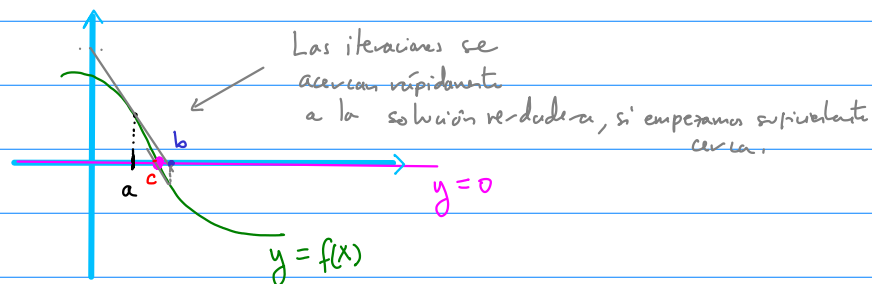 Las iteraciones se
acercan rápidamente
a la solución verdadera, si empezamos suficientemente
cerca.
b
a
c
y = 0
y = f(x)